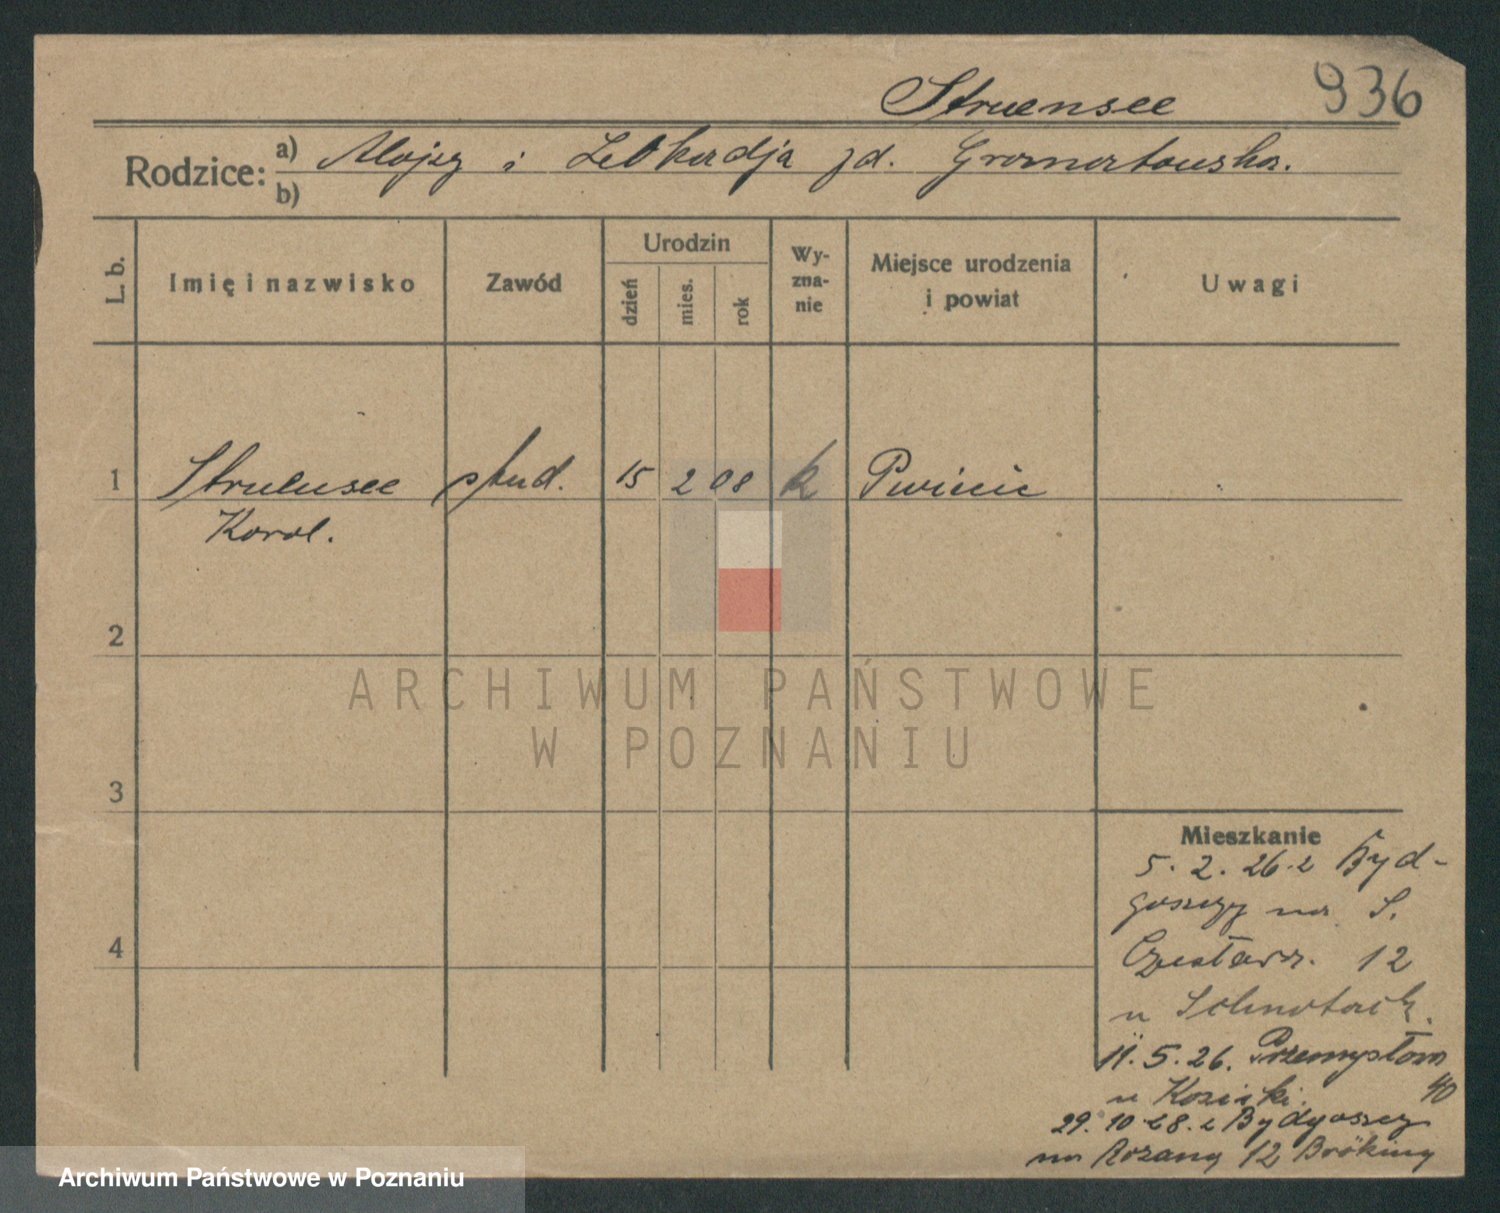 Struensee 936
Rodzice: a) Alojzy i Leokadja zd. Gromertowska.
b)
L. b. Imię i nazwisko Zawód Urodzin dzień mies. rok Wy-zna-nie Miejsce urodzenia i powiat Uwagi
1 Struensee stud. 15 2 08 k
Karol.
2
ARCHIWUM PAŃSTWOWE
W POZNANIU
3
Mieszkanie
5. 2. 26. z Byd-
goszczy na S.
12
4
u
11. 5. 26. Przemysłowa
40
u Kozicki.
29. 10 28. z Bydgoszczy
na Różaną 12 Bröking
Archiwum Państwowe w Poznaniu